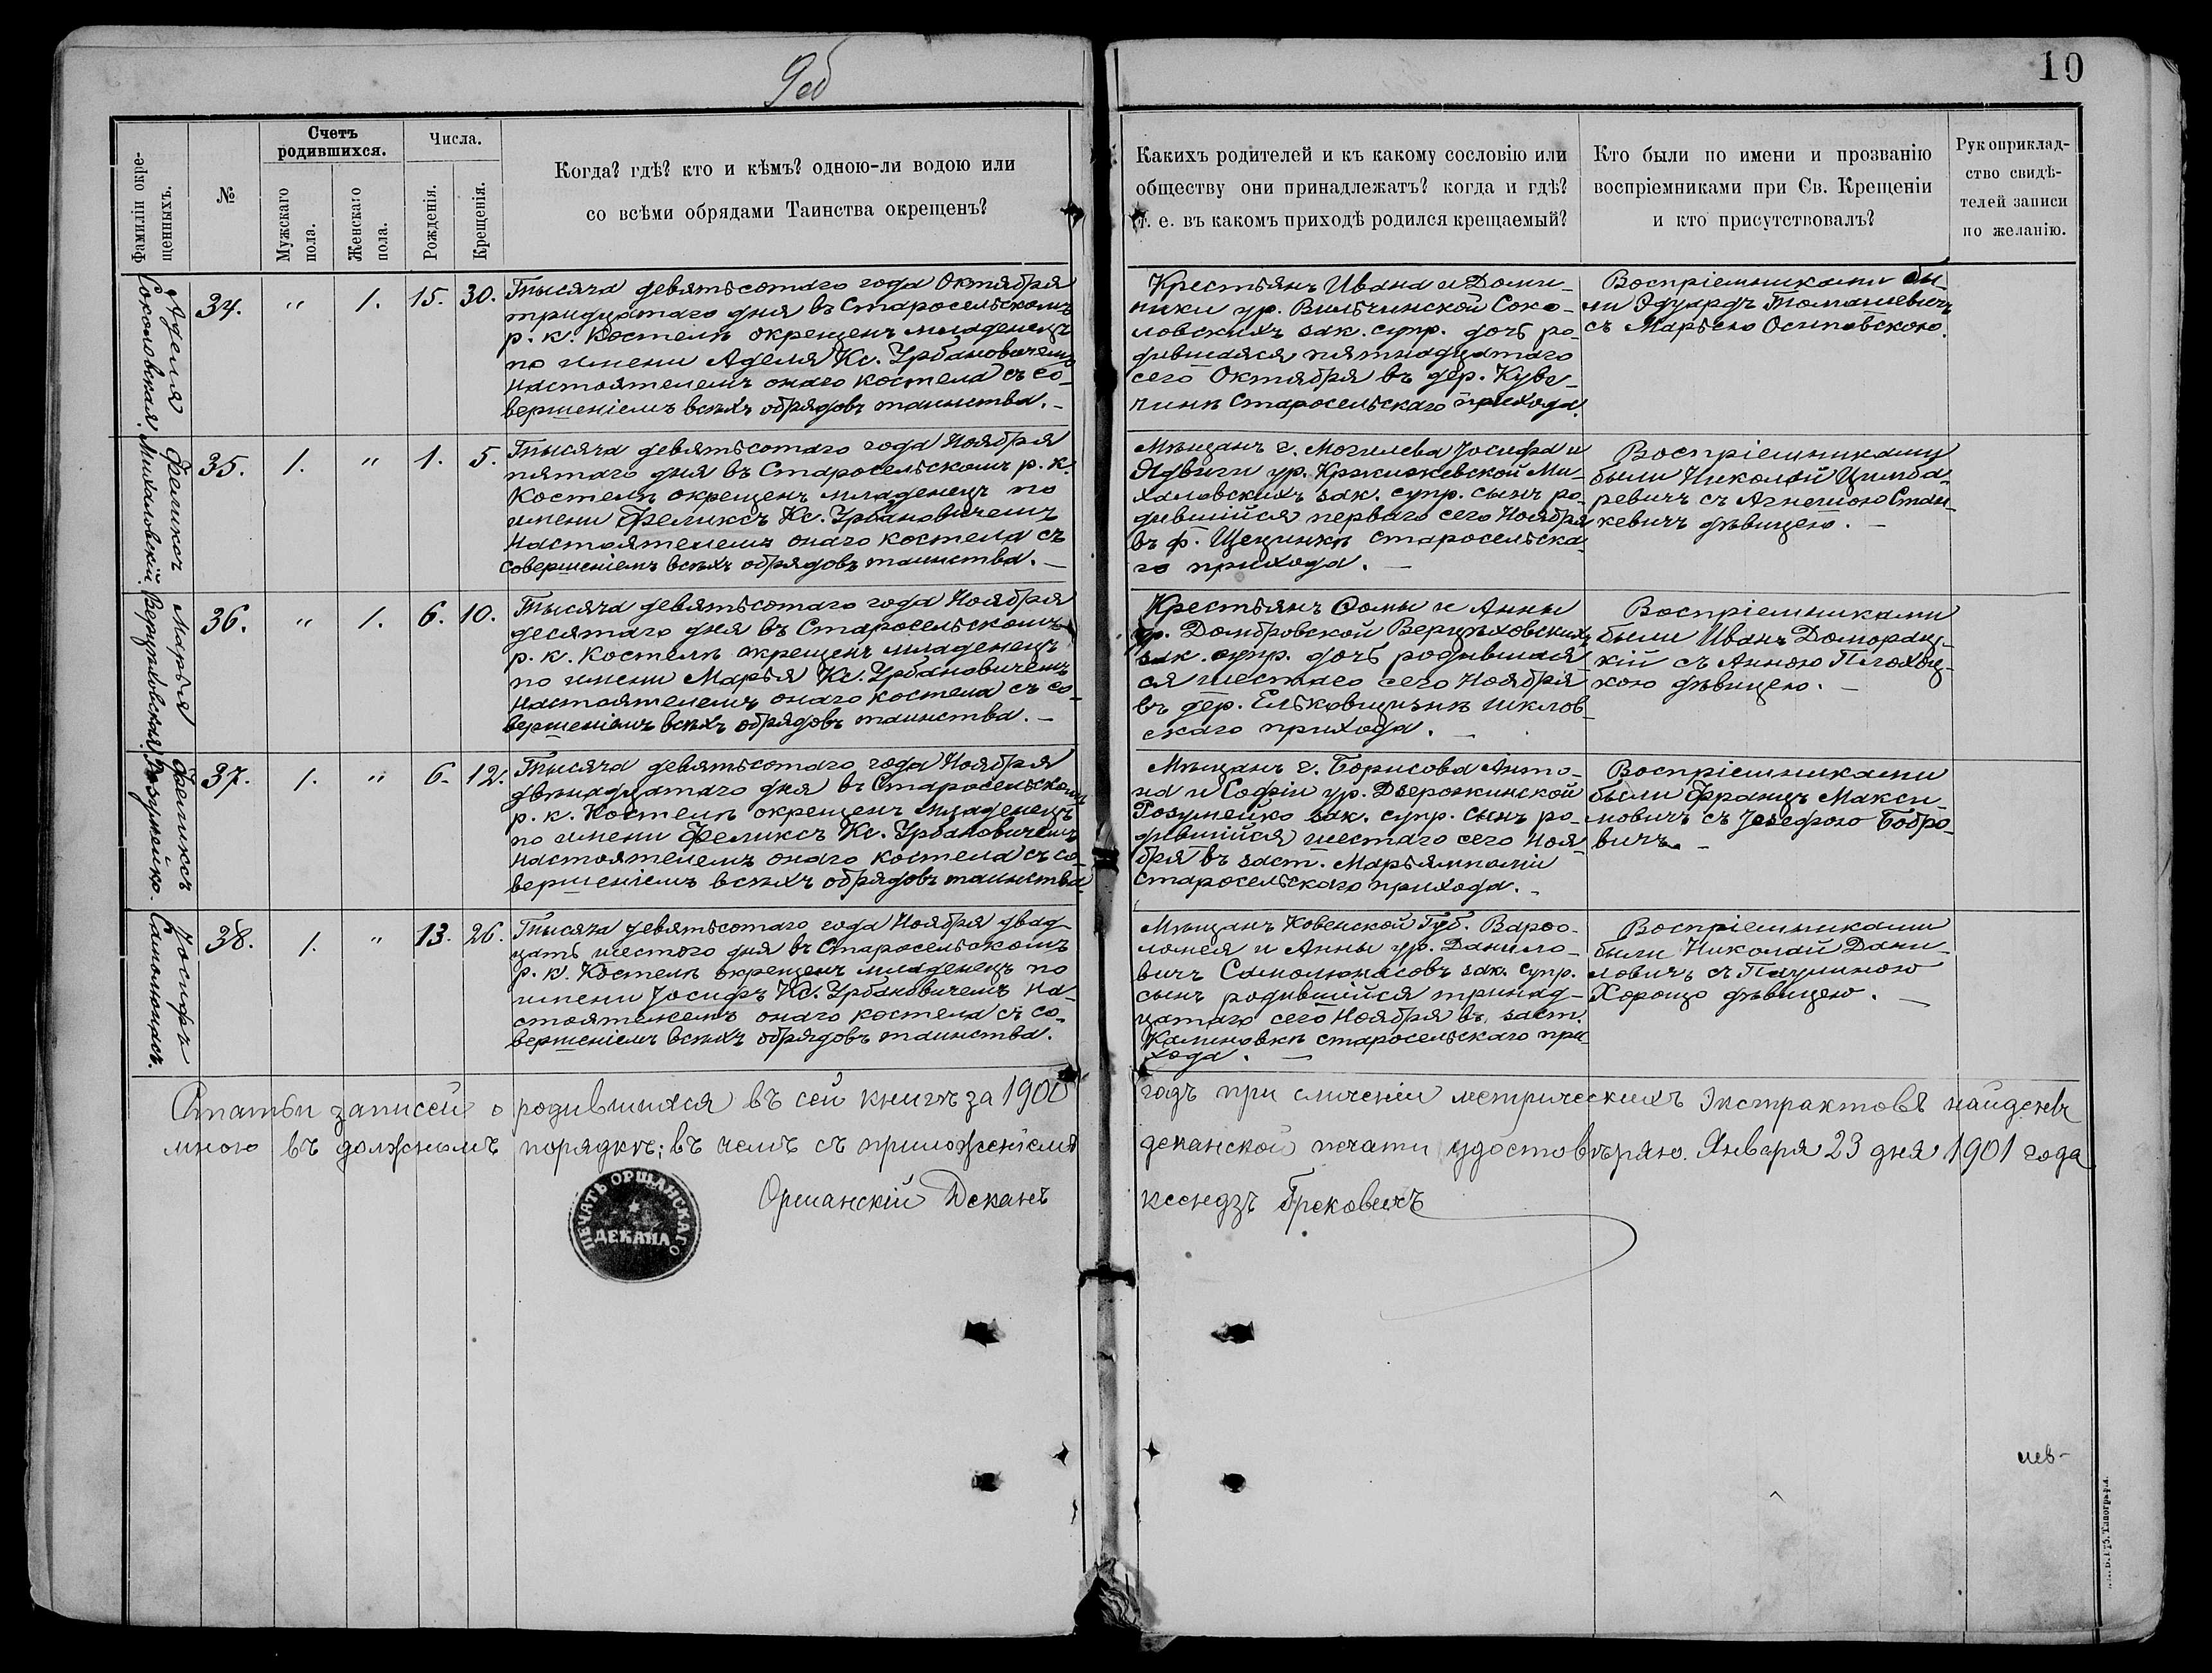 9об
10
Фамиліи окре-
щенныхъ.
№
Счетъ
родившихся.
Мужскаго
пола.
Женскаго
пола.
Числа.
Рожденія.
Крещенія.
Когда? гдѣ? кто и кѣмъ? одною-ли водою или
со всѣми обрядами Таинства окрещенъ?
Какихъ родителей и къ какому сословію или
обществу они принадлежатъ? когда и гдѣ?
т. е. въ какомъ приходѣ родился крещаемый?
Кто были по имени и прозванію
воспріемниками при Св. Крещеніи
и кто присутствовалъ?
Рукоприклад-
ство свидѣ-
телей записи
по желанію.
Аделя
Соколовская.
34. " 1. 15. 30.
Тысяча девятьсотаго года Октября
тридцатаго дня въ Старосельскомъ
р. к. Костелѣ окрещенъ младенецъ
по имени Аделя Кс. Урбановичемъ
настоятелемъ онаго костела съ со-
вершеніемъ всѣхъ обрядовъ таинства. –
Крестьянъ Ивана и Доми-
ники ур. Вильчинской Соко-
ловскихъ зак. супр. дочь ро-
дившаяся пятнадцатаго
сего Октября въ дер. Куве-
чинѣ Старосельскаго прихода.
Воспріемниками бы-
ли Эдуардъ Томашевичъ
съ Марьею Осиповскою.
Феликсъ
Михаловскій.
35. 1. " 1. 5.
Тысяча девятьсотаго года Ноября
пятаго дня въ Старосельскомъ р. к.
Костелѣ окрещенъ младенецъ по
имени Феликсъ Кс. Урбановичемъ
настоятелемъ онаго костела съ
совершеніемъ всѣхъ обрядовъ таинства. –
Мѣщанъ г. Могилева Іосифа и
Ядвиги ур. Кржижевской Ми-
халовскихъ зак. супр. сынъ ро-
дившійся перваго сего Ноября
въ ф. Щецинкѣ старосельска-
го прихода. –
Воспріемниками
были Николай Цимба-
ревичъ съ Агнешкою Стан-
кевичъ дѣвицею. –
Марья
Верцѣховская.
36. " 1. 6. 10.
Тысяча девятьсотаго года Ноября
десятаго дня въ Старосельскомъ
р. к. Костелѣ окрещенъ младенецъ
по имени Марья Кс. Урбановичемъ
настоятелемъ онаго костела съ со-
вершеніемъ всѣхъ обрядовъ таинства. –
Крестьянъ Ѳомы и Анны
ур. Домбровской Верцѣховскихъ
зак. супр. дочь родившая
ся шестаго сего Ноября
въ дер. Ельковщинѣ шклов-
скаго прихода. –
Воспріемниками
были Иванъ Доморац-
кій съ Анною Плохоц-
кою дѣвицею. –
Феликсъ
Розумейко.
37. 1. " 6. 12.
Тысяча девятьсотаго года Ноября
двѣнадцатаго дня въ Старосельскомъ
р. к. Костелѣ окрещенъ младенецъ
по имени Феликсъ Кс. Урбановичемъ
настоятелемъ онаго костела съ со-
вершеніемъ всѣхъ обрядовъ таинства
Мѣщанъ г. Борисова Анто-
на и Софіи ур. Держинской
Розумейко зак. супр. сынъ ро-
дившійся шестаго сего Ноя-
бря въ заст. Марьямполіи
старосельскаго прихода. –
Воспріемниками
были Францъ Макси-
мовичъ съ Іозефою Бобро-
вичъ. –
Іосифъ
38. 1. " 13. 26.
Тысяча девятьсотаго года Ноября двад-
цать шестого дня въ Старосельскомъ
р. к. Костелѣ окрещенъ младенецъ по
имени Іосифъ Кс. Урбановичемъ на-
стоятелемъ онаго костела съ со-
вершеніемъ всѣхъ обрядовъ таинства.
Мѣщанъ Ковенской Губ. Варѳо-
ломея и Анны ур. Данило-
вичъ Самолюкасовъ зак. супр.
сынъ родившійся тринад-
цатаго сего Ноября въ заст.
Калиновкѣ старосельскаго при-
хода. –
Воспріемниками
были Николай Дани-
ловичъ съ Паулиною
Хорощо дѣвицею. –
Статьи записей о родившихся въ сей книгѣ за 1900 годъ при сличеніи метрическихъ экстрактовъ найдены
мною въ должномъ порядкѣ; въ чемъ съ приложеніемъ деканской печати удостовѣряю. Января 23 дня 1901 года
Оршанскій Деканъ ксендзъ
ПЕЧАТЬ ОРШАНСКАГО
ДЕКАНА